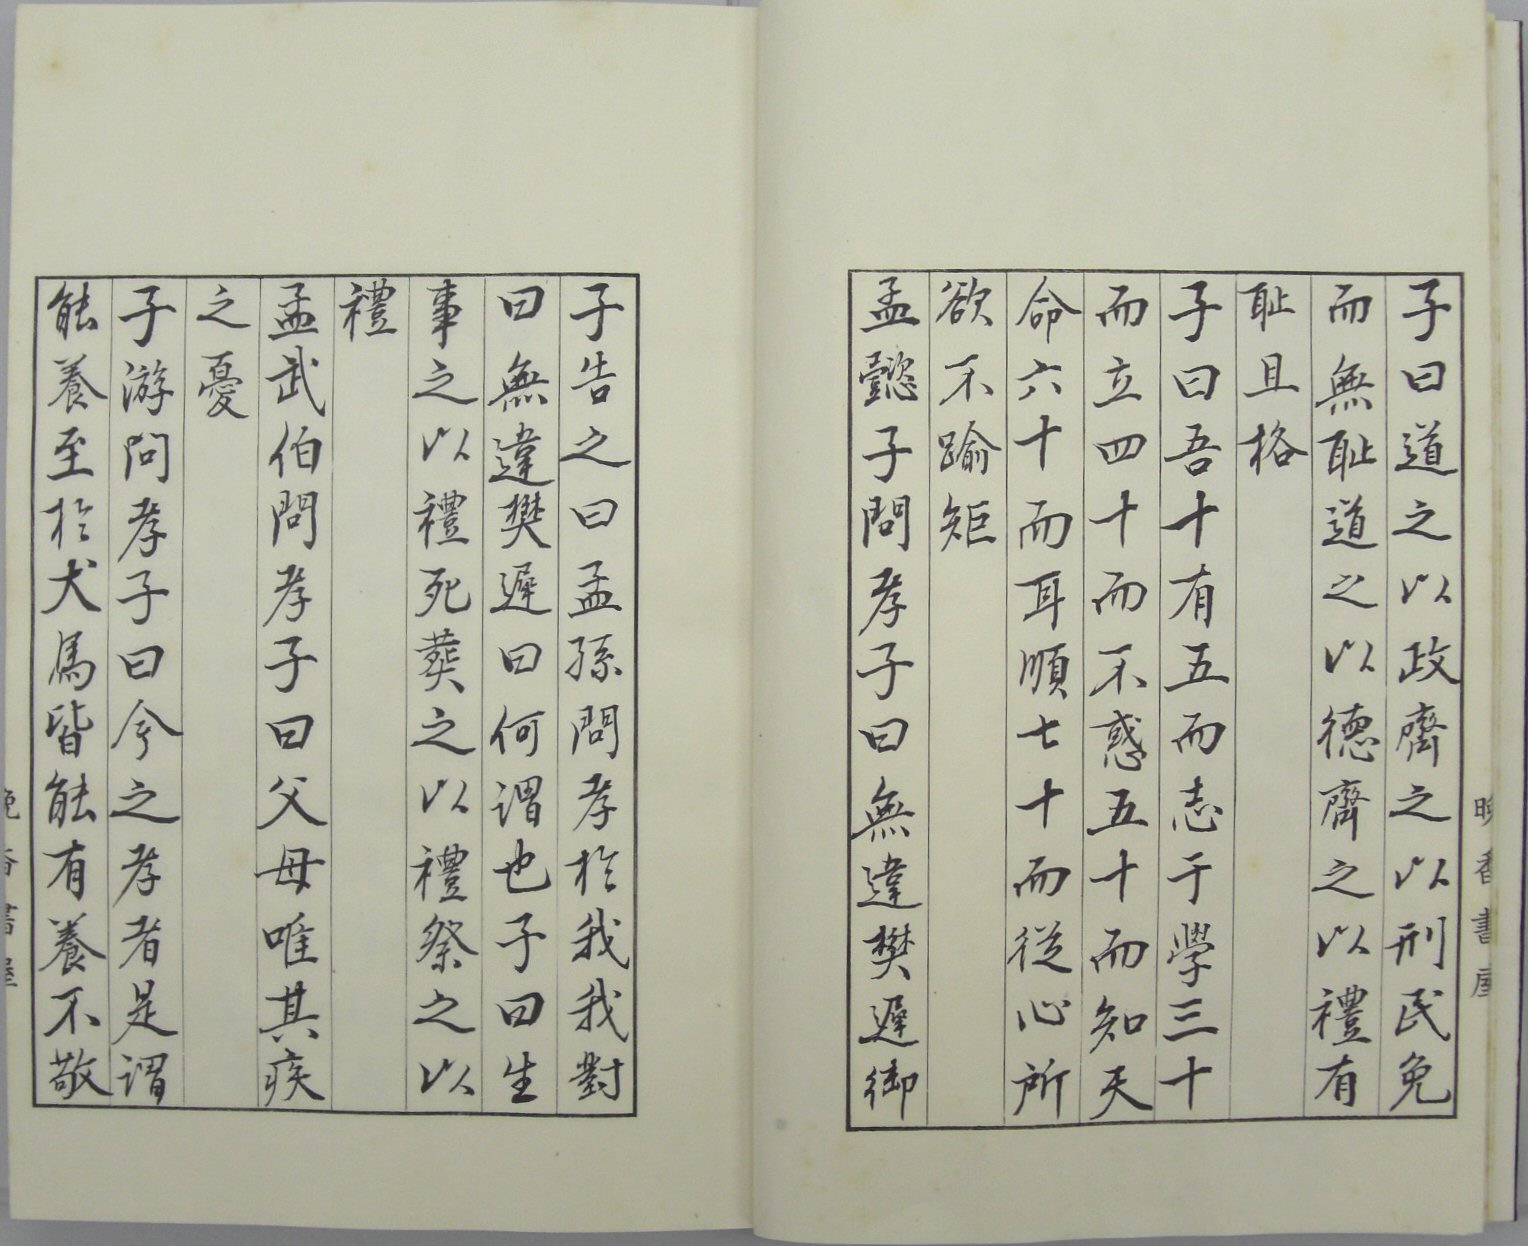 子曰道之以政齊之以刑民免
而無恥道之以德齊之以禮有
恥且格
子曰吾十有五而志于學三十
而立四十而不惑五十而知天
命六十而耳順七十而從心所
欲不踰矩
孟懿子問孝子曰無違樊遲御
子告之曰孟孫問孝於我我對
曰無違樊遲曰何謂也子曰生
事之以禮死葬之以禮祭之以
禮
孟武伯問孝子曰父母唯其疾
之憂
子游問孝子曰今之孝者是謂
能養至於犬馬皆能有養不敬
晚香書屋
晚香書屋